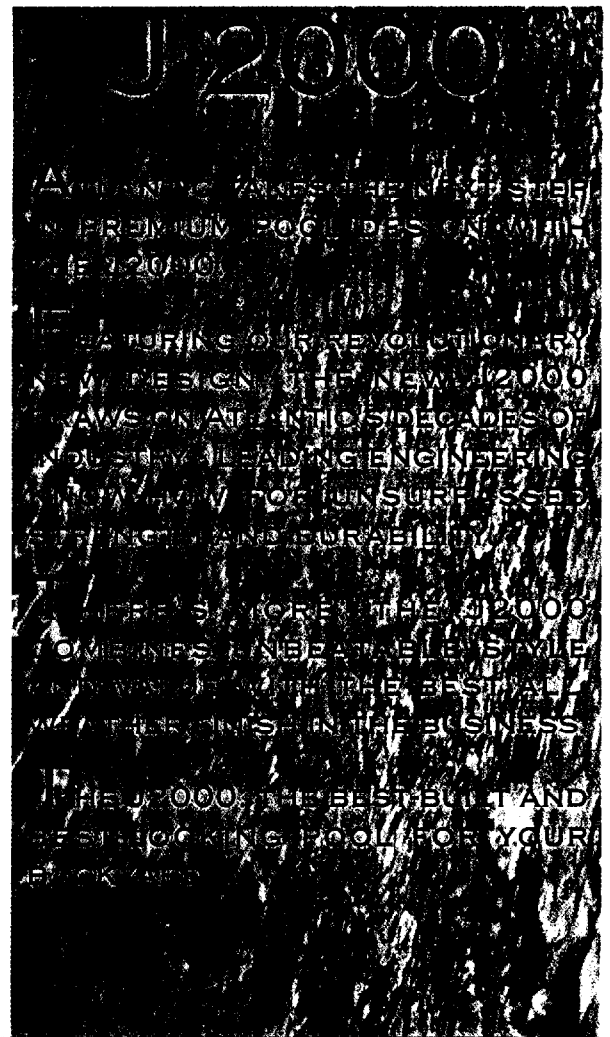 J 2000
ATLANTIC TAKES THE NEXT STEP
IN PREMIUM POOL DESIGN WITH
THE J2000.
FEATURING OUR REVOLUTIONARY
NEW DESIGN, THE NEW J2000
DRAWS ON ATLANTIC'S DECADES OF
INDUSTRY-LEADING ENGINEERING
KNOW-HOW FOR UNSURPASSED
STRENGTH AND DURABILITY.
THERE'S MORE! THE J2000
COMBINES UNBEATABLE STYLE
WITH THE BEST ALL-
WEATHER FINISH IN THE BUSINESS.
THE J2000: THE BEST-BUILT AND
BEST-LOOKING POOL FOR YOUR
BACKYARD.